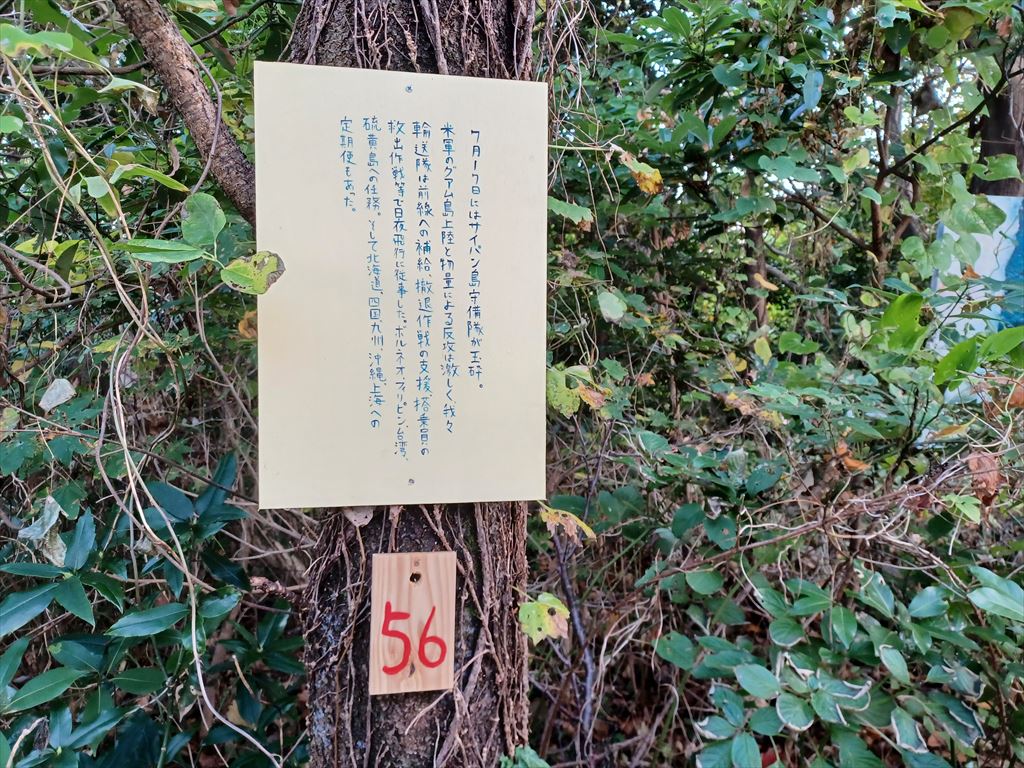 7月17日にはサイパン島守備隊が玉砕。
米軍のグアム島上陸と物量による反攻は激しく、我々
輸送隊は前線への補給、撤退作戦の支援、搭乗員の
救出作戦等で日夜飛行に従事した。ボルネオ、フィリピン、台湾、
硫黄島への任務。そして北海道、四国、九州、沖縄、上海への
定期便もあった。
56